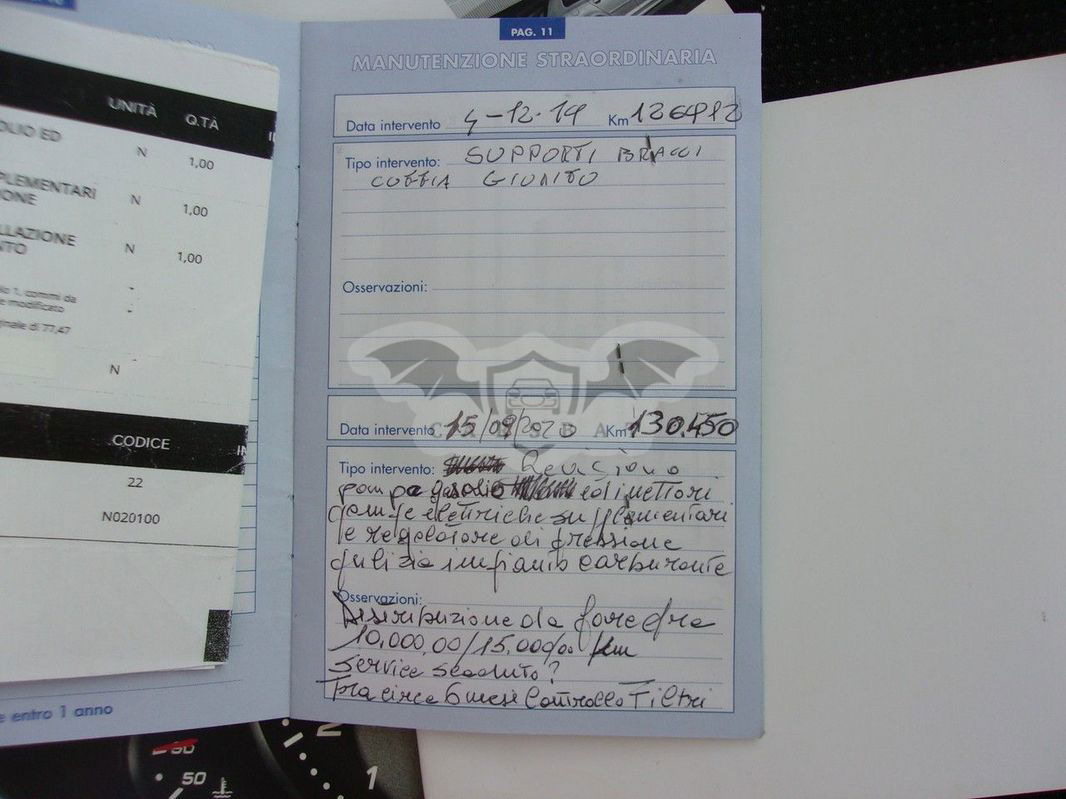 UNITÀ Q.TÀ
OLIO ED
N 1,00
PLEMENTARI
IONE N 1,00
LLAZIONE
NTO N 1,00
lo 1. commi da
e modificato
ginale di 77,47
N
CODICE
22
N020100
e entro 1 anno
PAG. 11
MANUTENZIONE STRAORDINARIA
Data intervento 4-12-19 Km
Tipo intervento: SUPPORTI BRACCI
CUFFIA GIUNTO
Osservazioni:
Data intervento 15/09/2020 Km 130.450
Tipo intervento: Revisione
pompa gasolio ed iniettori
pompe elettriche supplementari
e regolatore di pressione
pulizia impianto carburante
Osservazioni:
Distribuzione da fare fra
10.000,00/15.000,00 km
Service scaduto?
Fra circa 6 mesi Controllo Filtri
50
2
1